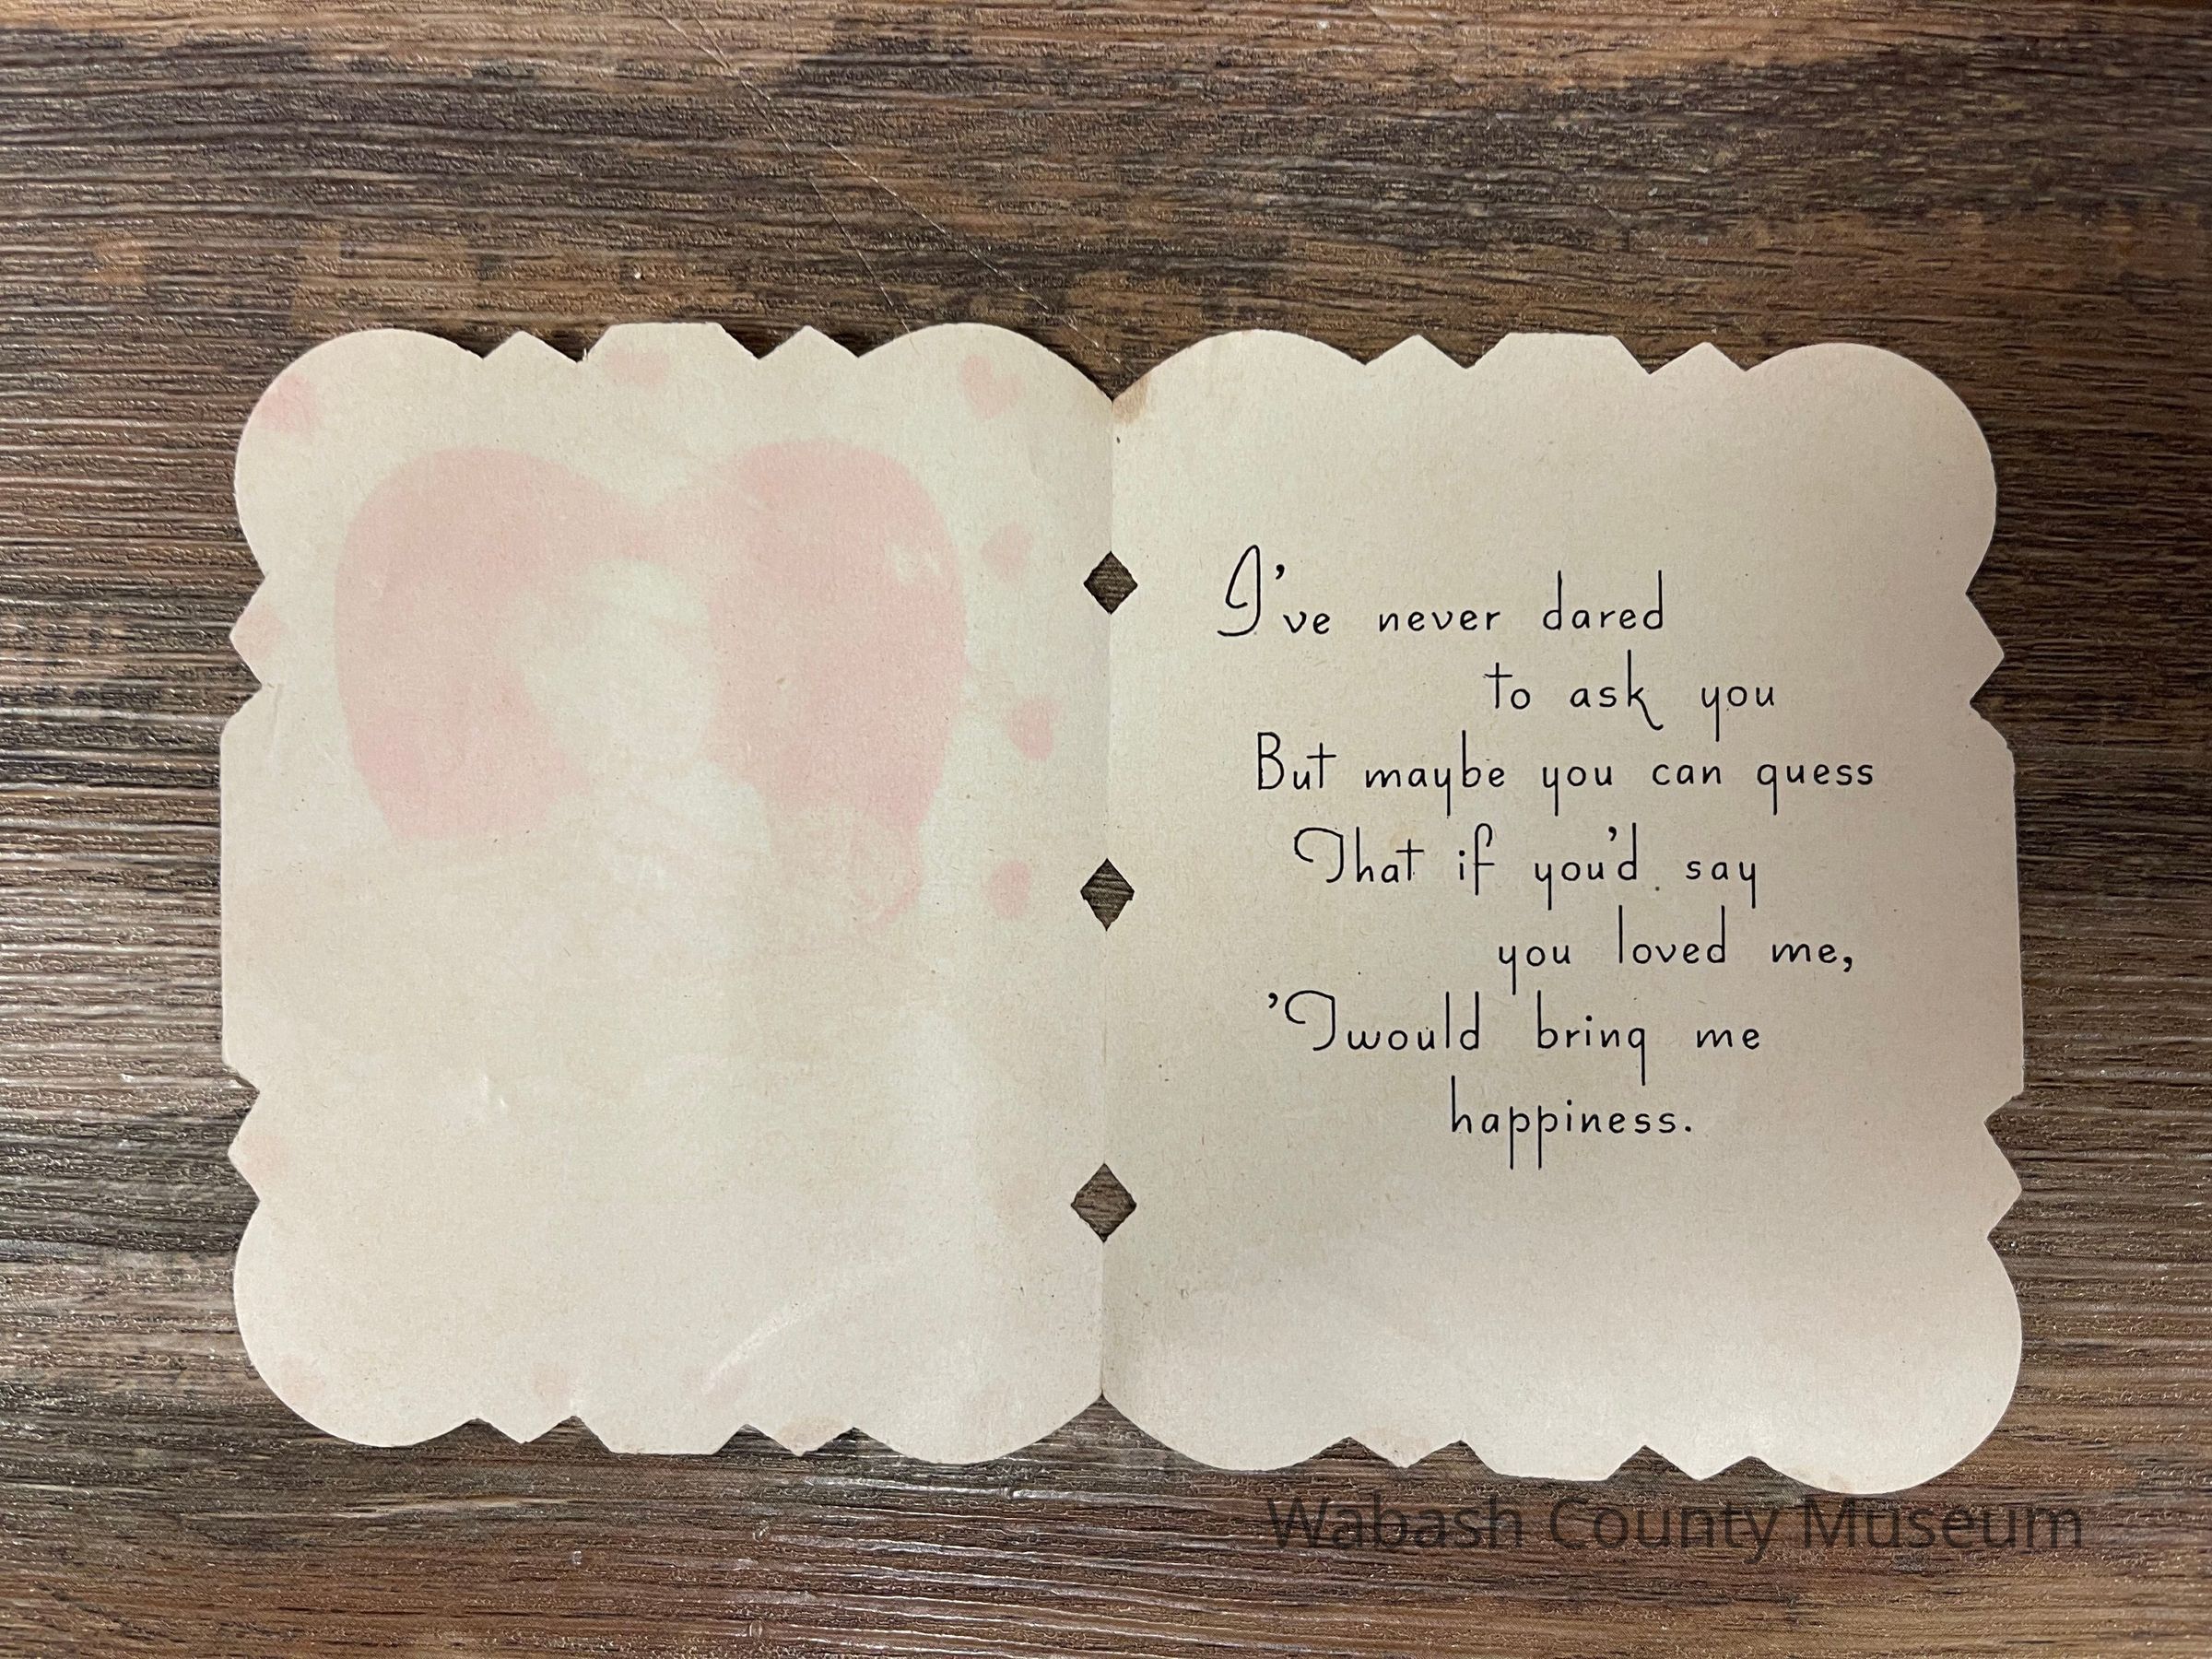 I've never dared
to ask you
But maybe you can guess
That if you'd say
you loved me,
'Twould bring me
happiness.
Wabash County Museum